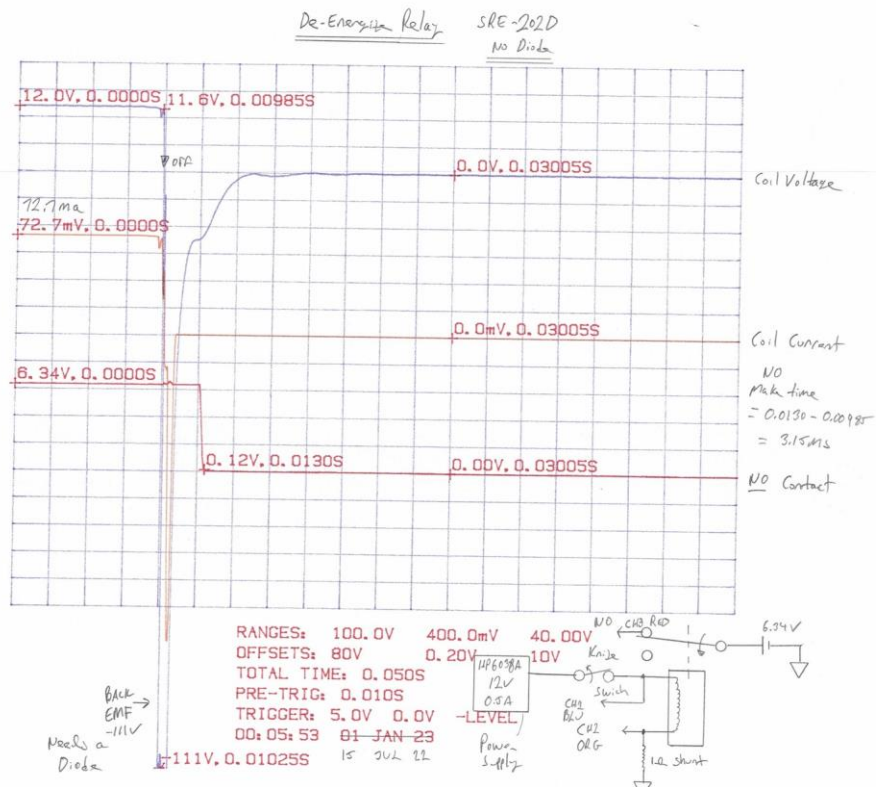 De-Energize Relay SRE-202D
No Diode
12.0V, 0.0000S 11.6V, 0.00985S
OFF
0.0V, 0.03005S
Coil Voltage
72.7ma
72.7mV, 0.0000S
0.0mV, 0.03005S
Coil Current
6.34V, 0.0000S
NO
Make time
= 0.0130 - 0.00985
= 3.15ms
0.12V, 0.0130S 0.00V, 0.03005S
NO Contact
RANGES: 100.0V 400.0mV 40.00V
OFFSETS: 80V 0.20V 10V
TOTAL TIME: 0.050S
PRE-TRIG: 0.010S
TRIGGER: 5.0V 0.0V -LEVEL
00:05:53 01 JAN 23
15 JUL 22
BACK
EMF
-111V
Needs a
Diode
-111V, 0.01025S
NO CH3 RED
6.34V
Knife
Swich
HP6038A
12V
0.5A
Power
Supply
CH1
BLU
CH2
ORG
1Ω Shunt